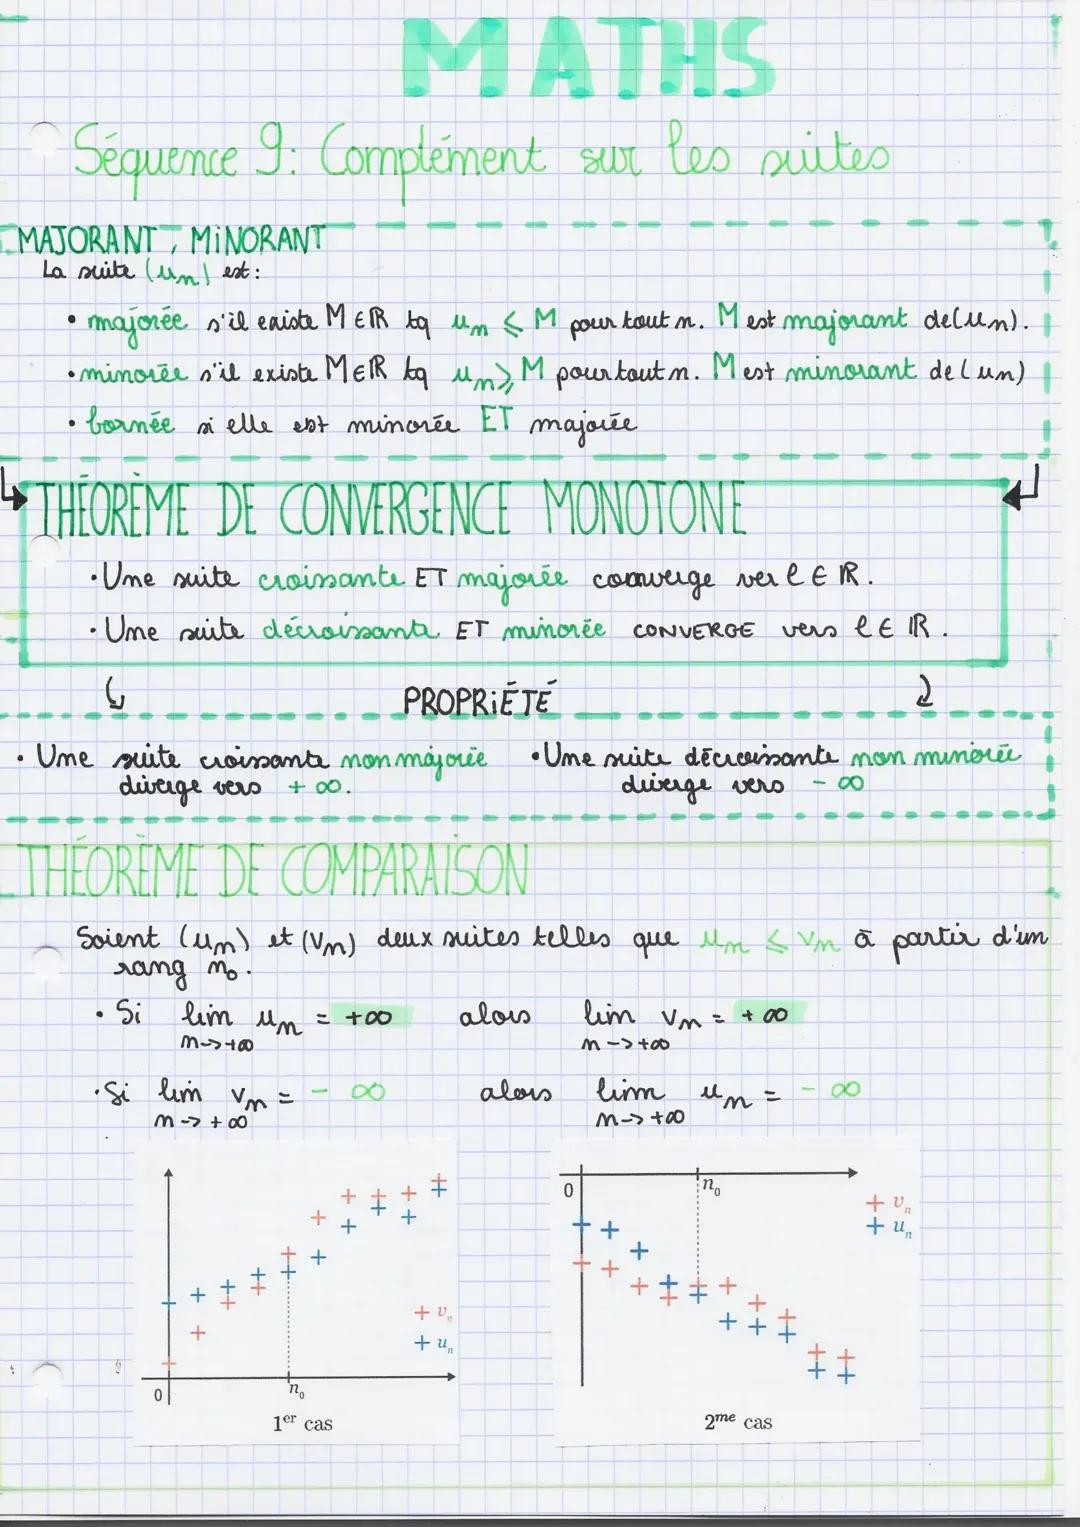 MATHS
Séquence 9: Complément sur les suites
MAJORANT, MINORANT
La suite (un) est :
• majorée s'il existe M ∈ ℝ tq un ⩽ M pour tout n. M est majorant de (un).
• minorée s'il existe M ∈ ℝ tq un ⩾ M pour tout n. M est minorant de (un)
• bornée si elle est minorée ET majorée
THÉORÈME DE CONVERGENCE MONOTONE
• Une suite croissante ET majorée converge ver l ∈ ℝ.
• Une suite décroissante ET minorée CONVERGE vers l ∈ ℝ.
PROPRIÉTÉ
• Une suite croissante non majorée
diverge vers +∞.
• Une suite décroissante non minorée
diverge vers -∞
THÉORÈME DE COMPARAISON
Soient (un) et (vn) deux suites telles que un ⩽ vn à partir d'un
rang n0.
• Si lim un = +∞ alors lim vn = +∞
n→+∞ n→+∞
• Si lim vn = -∞ alors lim un = -∞
n→+∞ n→+∞
vn
un
0 n0
1er cas
0 n0
vn
un
2me cas